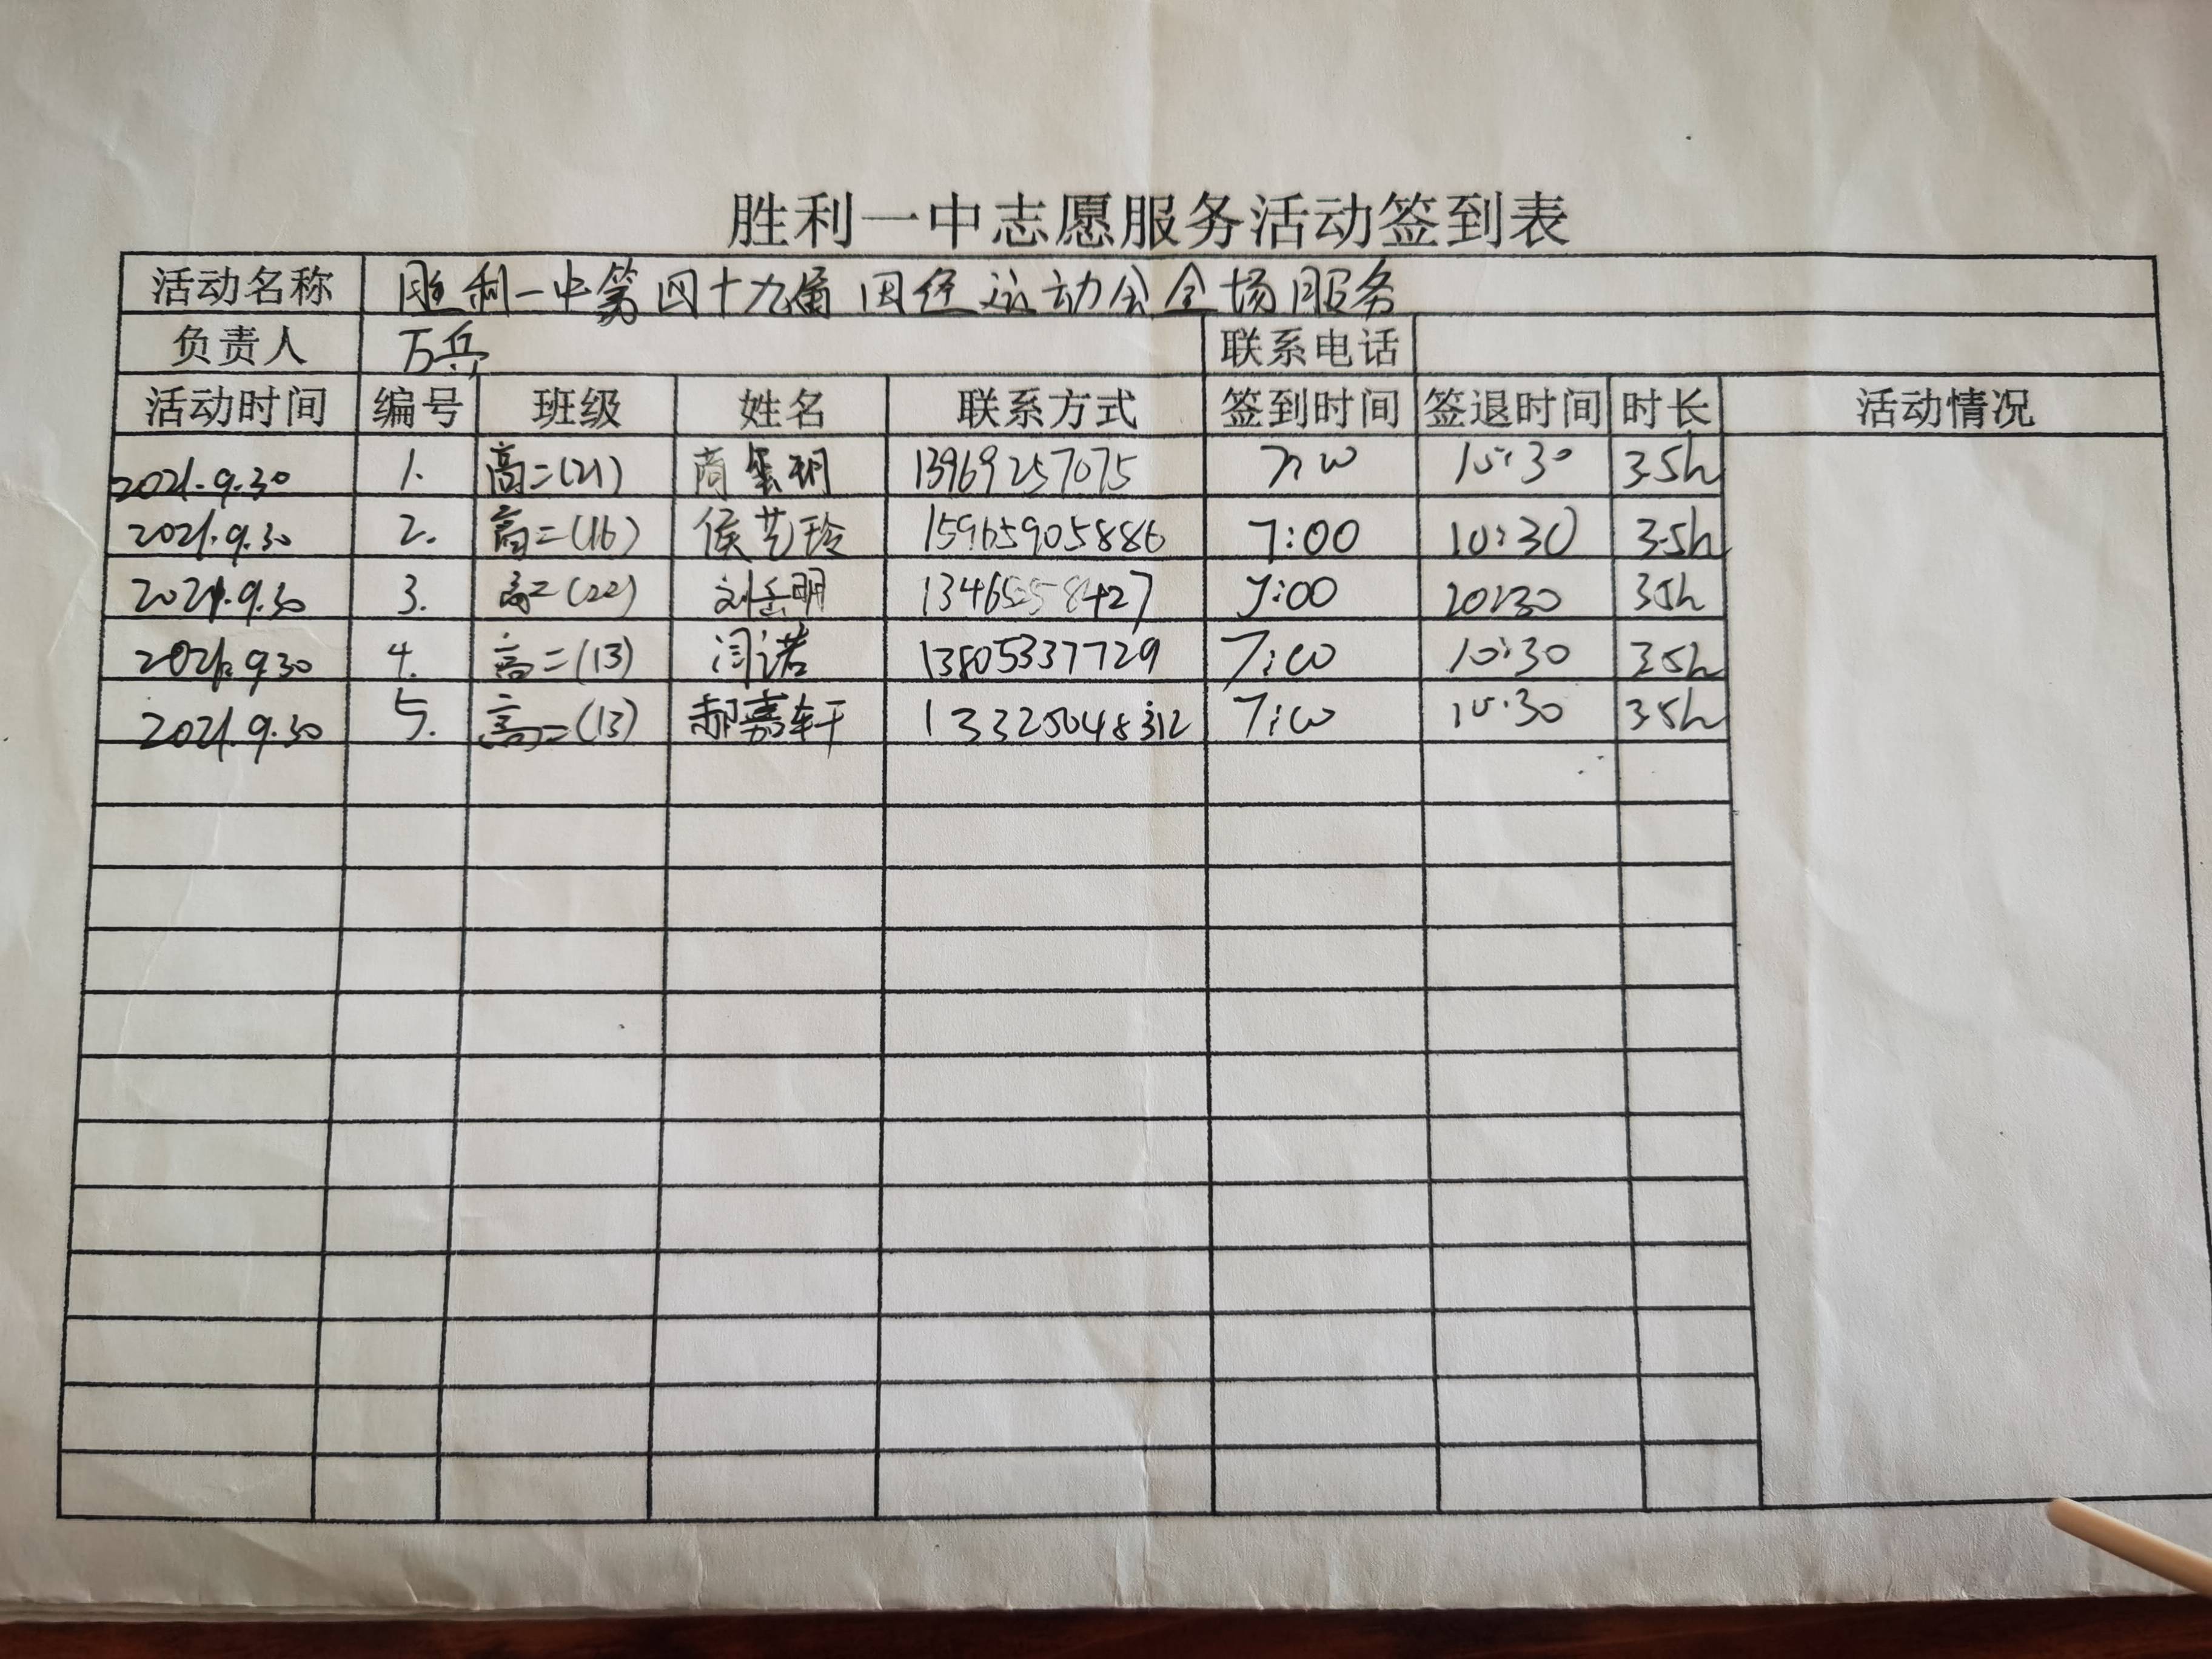 胜利一中志愿服务活动签到表
活动名称 胜利一中第四十九届田径运动会全场服务
负责人 万兵 联系电话
活动时间 编号 班级 姓名 联系方式 签到时间 签退时间 时长 活动情况
2021.9.30 1. 高二(21) 商 玥 13969257075 7:00 10:30 3.5h
2021.9.30 2. 高二(16) 侯艺玲 159659058886 7:00 10:30 3.5h
2021.9.30 3. 高二(22) 刘岳明 7:00 10:30 3.5h
2021.9.30 4. 高二(13) 闫诺 13805337729 7:00 10:30 3.5h
2021.9.30 5. 高二(13) 郝嘉轩 7:00 10:30 3.5h